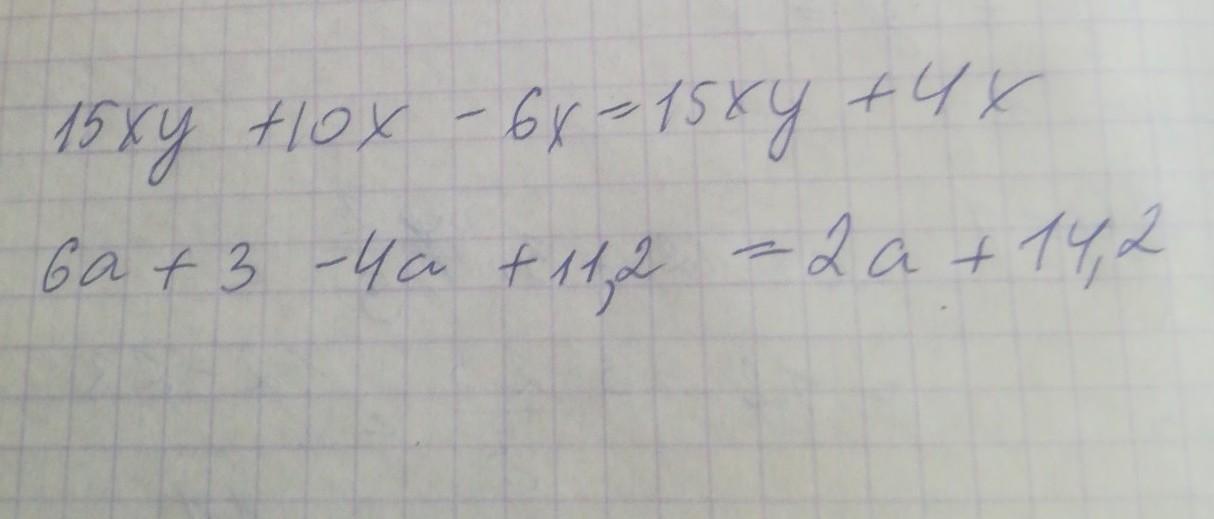 15xy +10x - 6x = 15xy + 4x
6a + 3 - 4a + 11,2 = 2a + 14,2